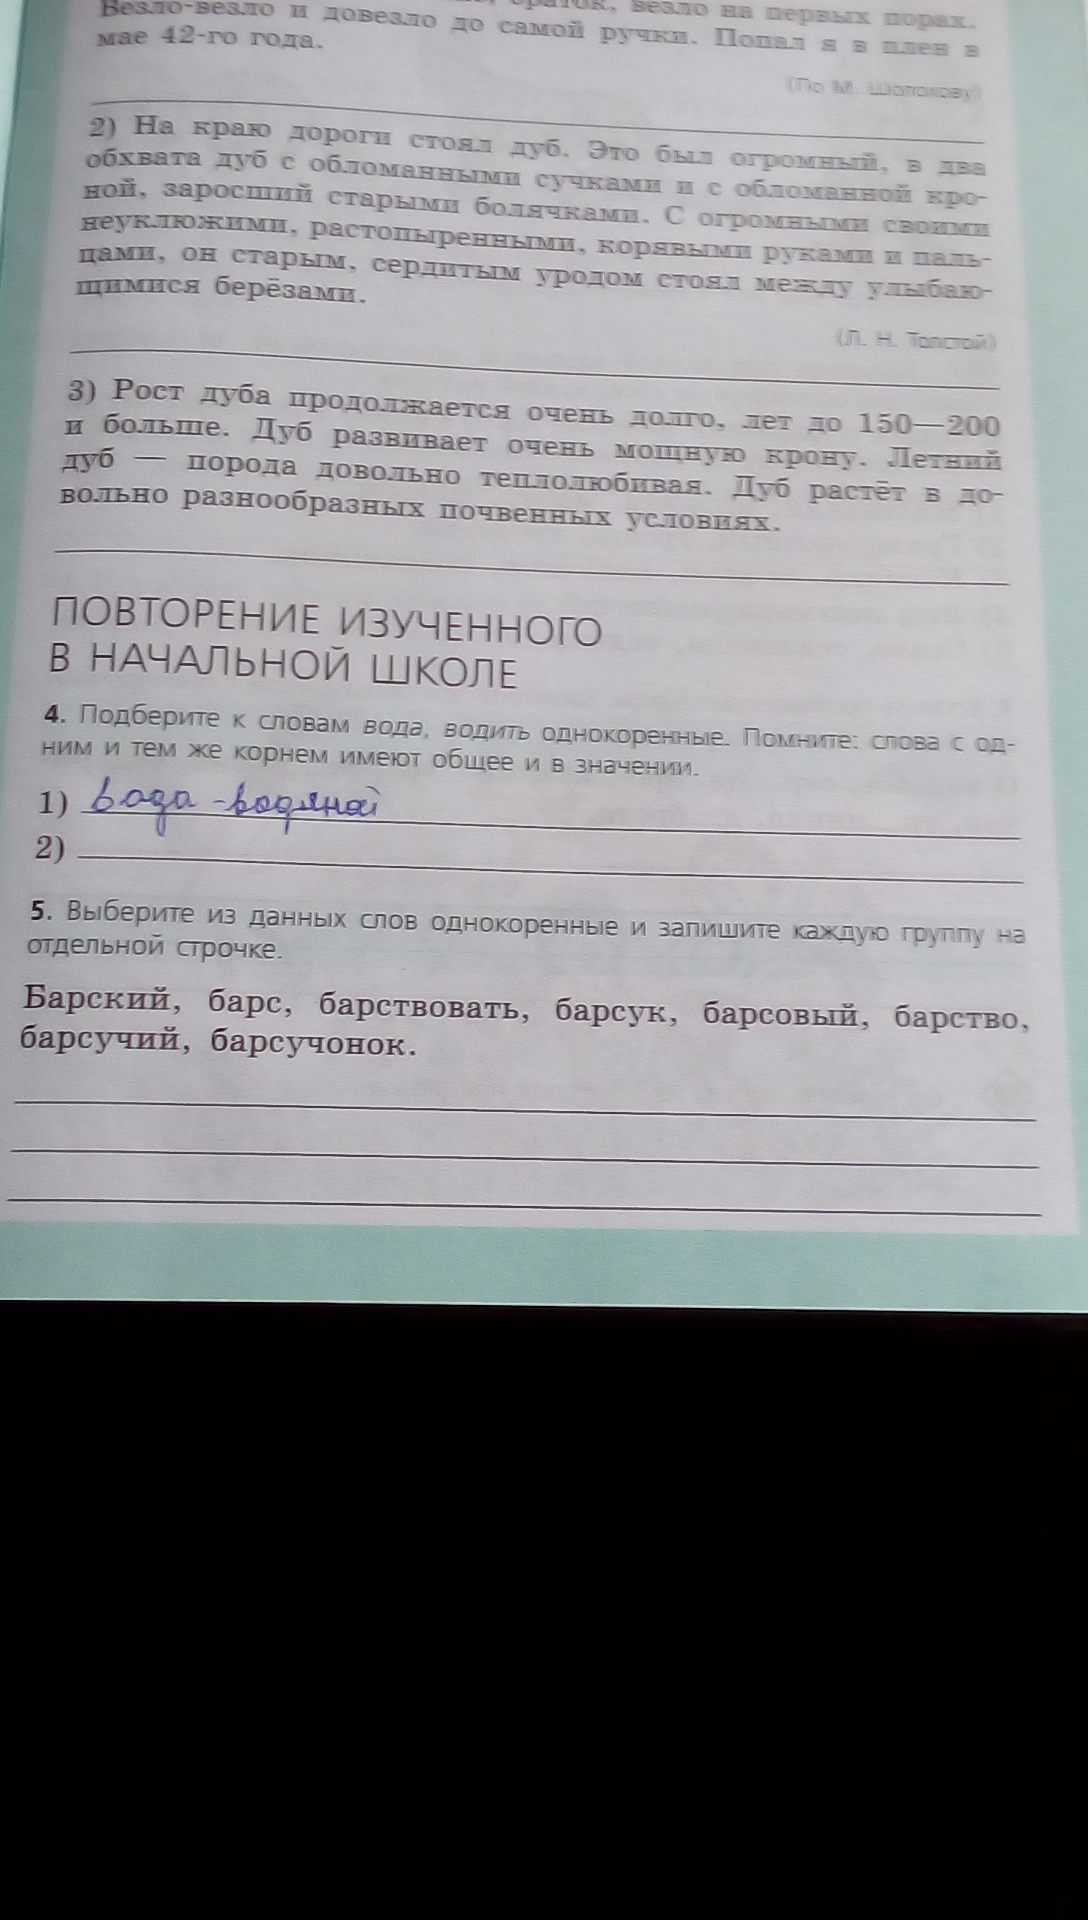 везло на первых порах.
Везло-везло и довезло до самой ручки. Попал я в плен в
мае 42-го года.
(По М. Шолохову)
2) На краю дороги стоял дуб. Это был огромный, в два
обхвата дуб с обломанными сучками и с обломанной кро-
ной, заросший старыми болячками. С огромными своими
неуклюжими, растопыренными, корявыми руками и паль-
цами, он старым, сердитым уродом стоял между улыбаю-
щимися берёзами.
(Л. Н. Толстой)
3) Рост дуба продолжается очень долго, лет до 150—200
и больше. Дуб развивает очень мощную крону. Летний
дуб — порода довольно теплолюбивая. Дуб растёт в до-
вольно разнообразных почвенных условиях.
ПОВТОРЕНИЕ ИЗУЧЕННОГО
В НАЧАЛЬНОЙ ШКОЛЕ
4. Подберите к словам вода, водить однокоренные. Помните: слова с од-
ним и тем же корнем имеют общее и в значении.
1) вода - водяной
2)
5. Выберите из данных слов однокоренные и запишите каждую группу на
отдельной строчке.
Барский, барс, барствовать, барсук, барсовый, барство,
барсучий, барсучонок.